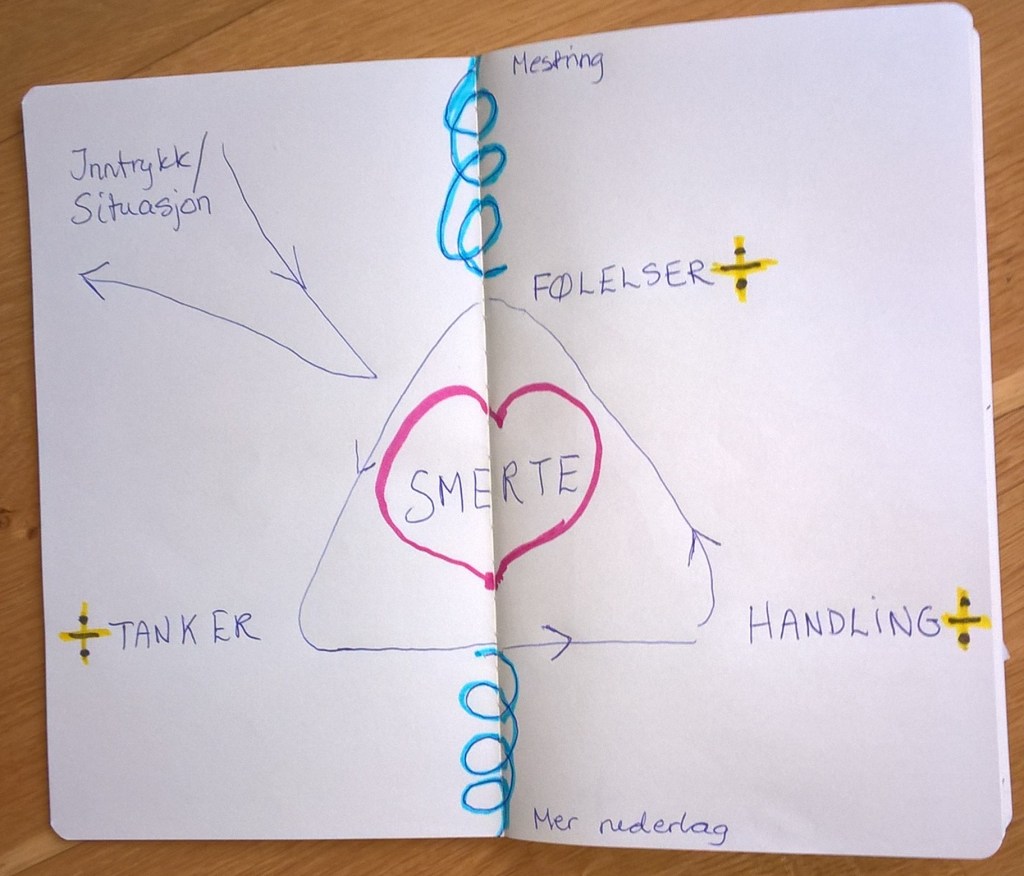 Mestring
Inntrykk/
Situasjon
FØLELSER ÷
SMERTE
÷ TANKER
HANDLING ÷
Mer nederlag